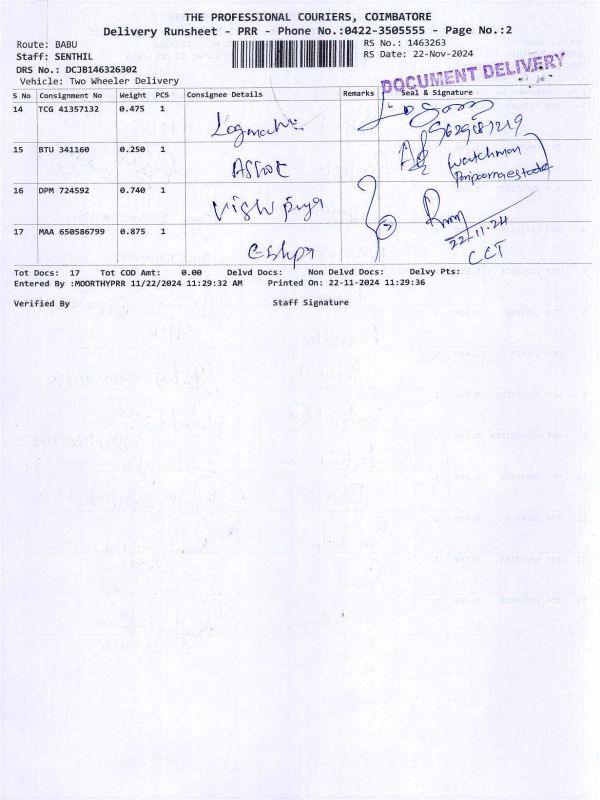 THE PROFESSIONAL COURIERS, COIMBATORE
Delivery Runsheet - PRR - Phone No.:0422-3505555 - Page No.:2
Route: BABU
RS No.: 1463263
Staff: SENTHIL
RS Date: 22-Nov-2024
DRS No.: DCJB146326302
Vehicle: Two Wheeler Delivery
DOCUMENT DELIVERY
S No Consignment No Weight PCS Consignee Details Remarks Seal & Signature
14 TCG 41357132 0.475 1
15 BTU 341160 0.250 1 Watchman
16 DPM 724592 0.740 1
17 MAA 650586799 0.875 1 22-11-24
CCT
Tot Docs: 17 Tot COD Amt: 0.00 Delvd Docs: Non Delvd Docs: Delvy Pts:
Entered By :MOORTHYPRR 11/22/2024 11:29:32 AM Printed On: 22-11-2024 11:29:36
Verified By Staff Signature